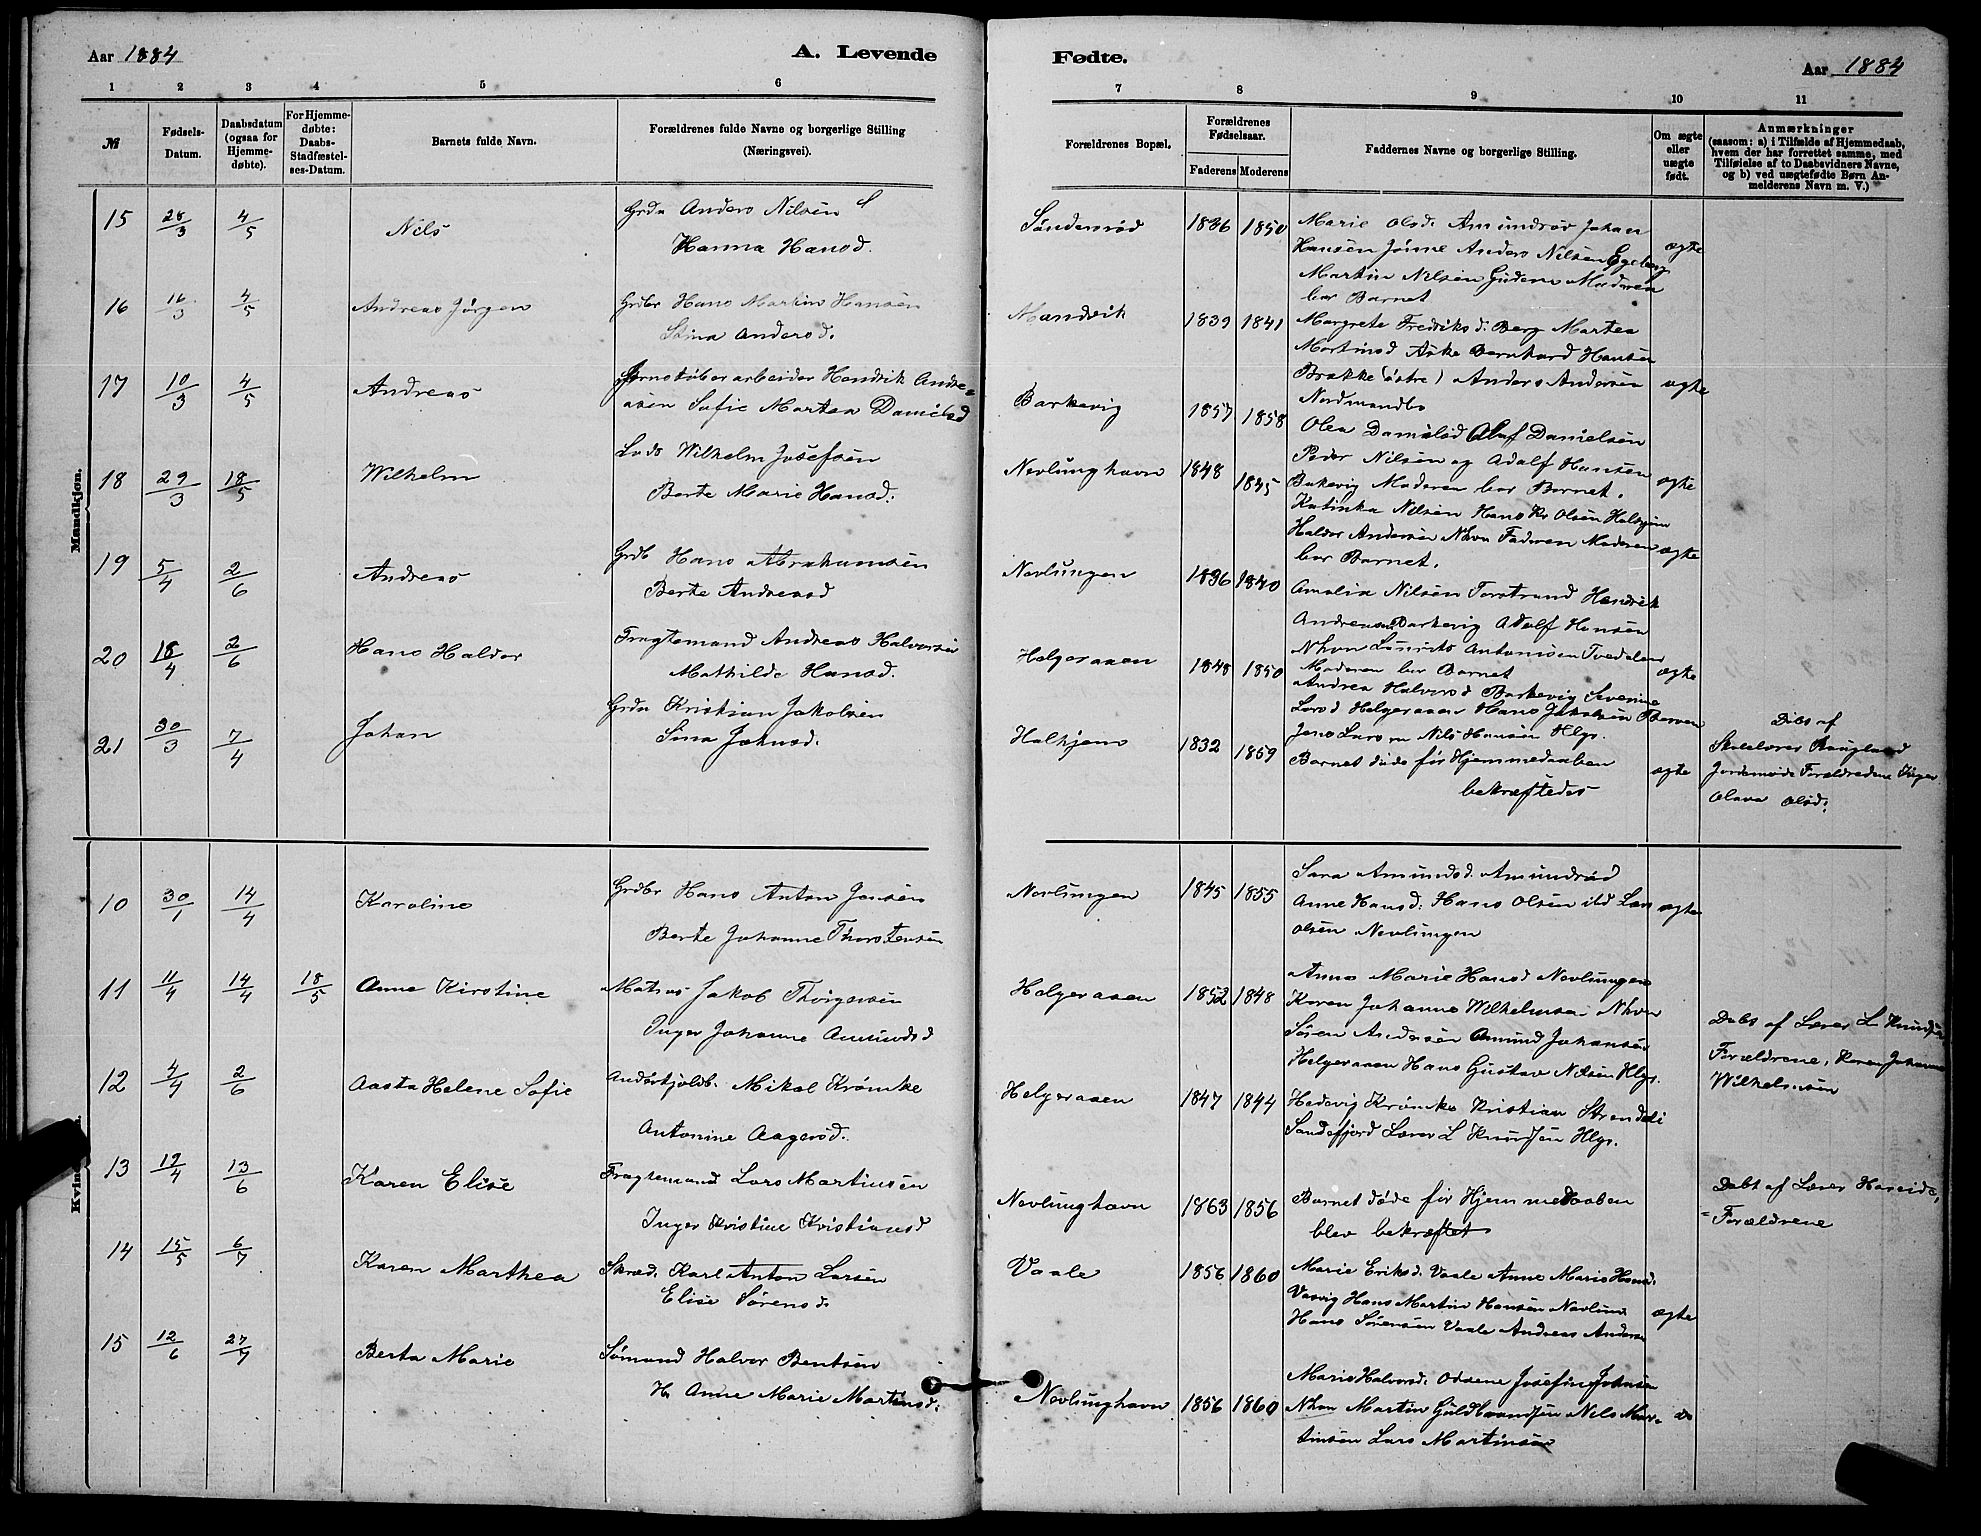 Aar 1884
A. Levende
1 2 3 4 5 6
№
Fødsels-Datum.
Daabsdatum (ogsaa for Hjemme-døbte).
For Hjemme-døbte: Daabs-Stadfæstel-ses-Datum.
Barnets fulde Navn.
Forældrenes fulde Navne og borgerlige Stilling
(Næringsvei).
Mandkjøn.
15 28/3 4/5 Nils Grdn Anders Nilsen
Hanna Hansd.
16 16/3 4/5 Andreas Jørgen Grdbr Hans Martin Hansen
Stina Andersd.
17 10/3 4/5 Andreas Jernstøberarbeider Hendrik Andre=
asen Sofie Martea Danielsd
18 29/3 18/5 Wilhelm Lods Wilhelm Josefsen
Berte Marie Hansd.
19 5/4 2/6 Andreas Grdb Hans Abrahamsen
Berte Andreasd
20 18/4 2/6 Hans Haldor Fragtemand Andreas Halvorsen
Mathilde Hansd.
21 30/3 7/4 Johan Grdn Kristian Jakobsen
Sina Johnsd.
10 30/1 14/4 Karoline Grdbr Hans Anton Jensen
Berte Johanne Thorstensen
11 11/4 14/4 18/5 Anne Kirstine Matros Jakob Thorgersen
Inger Johanne Amundsd
12 4/4 2/6 Aasta Helene Sofie Mikal Krømke
Antonine Aagesd.
13 19/4 13/6 Karen Elise Fragtemand Lars Martinsen
Inger Kristine Kristiansd
14 15/5 6/7 Karen Marthea Skræd. Karl Anton Larsen
Elise Sørensd.
15 12/6 27/7 Berta Marie Sømand Halvor Bentsen
H. Anne Marie Martinsd.
Fødte.
Aar 1884
7 8 9 10 11
Forældrenes Bopæl.
Forældrenes Fødselsaar.
Faderens Moderens
Faddernes Navne og borgerlige Stilling.
Om ægte eller uægte født.
Anmærkninger
(saasom: a) i Tilfælde af Hjemmedaab,
hvem der har forrettet samme, med
Tilføielse af to Daabsvidners Navne,
og b) ved uægtefødte Børn An-
melderens Navn m. V.)
Søndersrød 1836 1850 Marie Olsd. Amundrød Johan
Hansen Jønne Anders Nilsen Egeberg ægte
Martin Nilsen Moderen
bar Barnet
Mandvik 1839 1841 Margrete Fredriksd. Berg Martea
Martinsd Aske Bernhard Hansen
Brække (østre) Anders Andersen ægte
Nordmandbo
Barkevig 1857 1858 Olea Danielsd Olaf Danielsen
Peder Nilsen og Adolf Hansen
Nevlunghavn 1848 1845 Bakevig Moderen bar Barnet. ægte
Katinka Nilsen Hans Kr Olsen
Haldor Andersen Nhvn Faderen Moderen ægte
bar Barnet.
Nevlungen 1836 1840 Amalia Nilsen Torstrand Hendrik
Andreasen Barkevig Adolf Hansen
Nhvn Antonsen Tvedalen
Helgeraaen 1848 1850 Moderen bar Barnet ægte
Andrea Halvorsd Barkevig Severine
Larsd Helgeraaen Hans Jakobsen
Jens Larsen Nils Hansen Hlgr.
Halhjem 1832 1859 Barnet døde før Hjemmedaaben ægte
bekræftedes
Døbt af
Skolelærer Haugland
Jordemoder Forældrene Inger
Olava Olsd.
Nevlungen 1845 1855 Sara Amundsd. Amundrød
Anne Hansd. Hans Olsen ibd Lars ægte
Olsen Nevlungen
Helgeraaen 1852 1848 Anne Marie Hansd Nevlungen
Karen Johanne Wilhelmsen Nhvn
Søren Andersen Amund Johansen
Helgeraaen Hans Gustav Nilsen Hlgr.
Døbt af Lærer L Knudsen
Forældrene, Karen Johanne
Wilhelmsen
Helgeraaen 1847 1844 Hedevig Krømke Kristian
Sandefjord Lærer L Knudsen Hlgr.
Nevlunghavn 1863 1856 Barnet døde før Hjemmedaaben
blev bekræftet
Døbt af Lærer Hareide,
= Forældrene
Vaale 1856 1860 Marie Eriksd. Vaale Anne Marie Hansd.
Vasvig Hans Martin Hansen Nevlung ægte
Hans Sørensen Vaale Andreas Andersen
Nevlunghavn 1856 1860 Marie Halvorsd. Josefine Johnsen
Nhvn Martin Guldbrandsen Nils Mar- do
tinsen Lars Martinsen